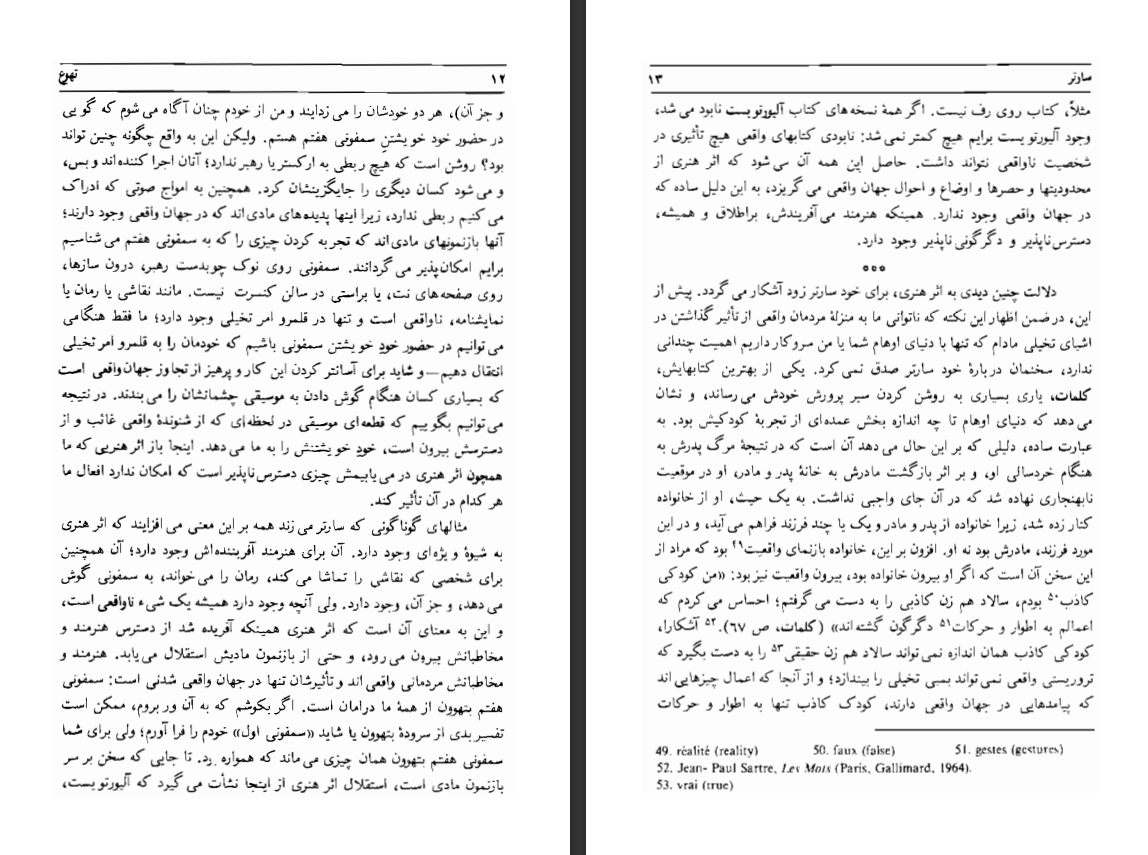 ۱۲ تهوع
و جز آن)، هر دو خودشان را می زدایند و من از خودم چنان آگاه می شوم که گویی
در حضور خود خویشتنِ سمفونی هفتم هستم. ولیکن این به واقع چگونه چنین تواند
بود؟ روشن است که هیچ ربطی به ارکستر یا رهبر ندارد؛ آنان اجرا کننده اند و بس،
و می شود کسان دیگری را جایگزینشان کرد. همچنین به امواج صوتی که ادراک
می کنیم ربطی ندارد، زیرا اینها پدیده های مادی اند که در جهان واقعی وجود دارند؛
آنها بازنمونهای مادی اند که تجربه کردن چیزی را که به سمفونی هفتم می شناسیم
برایم امکان پذیر می گردانند. سمفونی روی نوک چوبدست رهبر، درون سازها،
روی صفحه های نت، یا براستی در سالن کنسرت نیست. مانند نقاشی یا رمان یا
نمایشنامه، ناواقعی است و تنها در قلمرو امر تخیلی وجود دارد؛ ما فقط هنگامی
می توانیم در حضور خودِ خویشتن سمفونی باشیم که خودمان را به قلمرو امر تخیلی
انتقال دهیم—و شاید برای آسانتر کردن این کار و پرهیز از تجاوز جهان واقعی است
که بسیاری کسان هنگام گوش دادن به موسیقی چشمانشان را می بندند. در نتیجه
می توانیم بگوییم که قطعه ای موسیقی در لحظه ای که از شنوندهٔ واقعی غائب و از
دسترسش بیرون است، خودِ خویشتنش را به ما می دهد. اینجا باز اثر هنریی که ما
همچون اثر هنری در می یابیمش چیزی دسترس ناپذیر است که امکان ندارد افعال ما
هر کدام در آن تأثیر کند.
مثالهای گوناگونی که سارتر می زند همه بر این معنی می افزایند که اثر هنری
به شیوهٔ ویژه ای وجود دارد. آن برای هنرمند آفریننده اش وجود دارد؛ آن همچنین
برای شخصی که نقاشی را تماشا می کند، رمان را می خواند، به سمفونی گوش
می دهد، و جز آن، وجود دارد. ولی آنچه وجود دارد همیشه یک شیء ناواقعی است،
و این به معنای آن است که اثر هنری همینکه آفریده شد از دسترس هنرمند و
مخاطبانش بیرون می رود، و حتی از بازنمون مادیش استقلال می یابد. هنرمند و
مخاطبانش مردمانی واقعی اند و تأثیرشان تنها در جهان واقعی شدنی است: سمفونی
هفتم بتهوون از همهٔ ما درامان است. اگر بکوشم که به آن ور بروم، ممکن است
تفسیر بدی از سرودهٔ بتهوون یا شاید «سمفونی اول» خودم را فرا آورم؛ ولی برای شما
سمفونی هفتم بتهوون همان چیزی می ماند که همواره بود. تا جایی که سخن بر سر
بازنمون مادی است، استقلال اثر هنری از اینجا نشأت می گیرد که آلیورتویست،
۱۳ سارتر
مثلاً، کتاب روی رف نیست. اگر همهٔ نسخه های کتاب آلیورتویست نابود می شد،
وجود آلیورتویست برایم هیچ کمتر نمی شد: نابودی کتابهای واقعی هیچ تأثیری در
شخصیت ناواقعی نتواند داشت. حاصل این همه آن می شود که اثر هنری از
محدودیتها و حصرها و اوضاع و احوال جهان واقعی می گریزد، به این دلیل ساده که
در جهان واقعی وجود ندارد. همینکه هنرمند می آفریندش، براطلاق و همیشه،
دسترس ناپذیر و دگرگونی ناپذیر وجود دارد.
ه ه ه
دلالت چنین دیدی به اثر هنری، برای خود سارتر زود آشکار می گردد. پیش از
این، در ضمن اظهار این نکته که ناتوانی ما به منزلهٔ مردمان واقعی از تأثیر گذاشتن در
اشیای تخیلی مادام که تنها با دنیای اوهام شما یا من سروکار داریم اهمیت چندانی
ندارد، سخنمان دربارهٔ خود سارتر صدق نمی کرد. یکی از بهترین کتابهایش،
کلمات، یاری بسیاری به روشن کردن سیر پرورش خودش می رساند، و نشان
می دهد که دنیای اوهام تا چه اندازه بخش عمده ای از تجربهٔ کودکیش بود. به
عبارت ساده، دلیلی که بر این حال می دهد آن است که در نتیجهٔ مرگ پدرش به
هنگام خردسالی او، و بر اثر بازگشت مادرش به خانهٔ پدر و مادر، او در موقعیت
نابهنجاری نهاده شد که در آن جای واجبی نداشت. به یک حیث، او از خانواده
کنار زده شد، زیرا خانواده از پدر و مادر و یک یا چند فرزند فراهم می آید، و در این
مورد فرزند، مادرش بود نه او. افزون بر این، خانواده بازنمای واقعیت۴۹ بود که مراد از
این سخن آن است که اگر او بیرون خانواده بود، بیرون واقعیت نیز بود: «من کودکی
کاذب۵۰ بودم، سالاد هم زن کاذبی را به دست می گرفتم؛ احساس می کردم که
اعمالم به اطوار و حرکات۵۱ دگرگون گشته اند» (کلمات، ص ۶۷).۵۲ آشکارا،
کودکی کاذب همان اندازه نمی تواند سالاد هم زن حقیقی۵۳ را به دست بگیرد که
تروریستی واقعی نمی تواند بمبی تخیلی را بیندازد؛ و از آنجا که اعمال چیزهایی اند
که پیامدهایی در جهان واقعی دارند، کودک کاذب تنها به اطوار و حرکات
49. réalité (reality) 50. faux (false) 51. gestes (gestures)
52. Jean- Paul Sartre, Les Mots (Paris, Gallimard, 1964).
53. vrai (true)